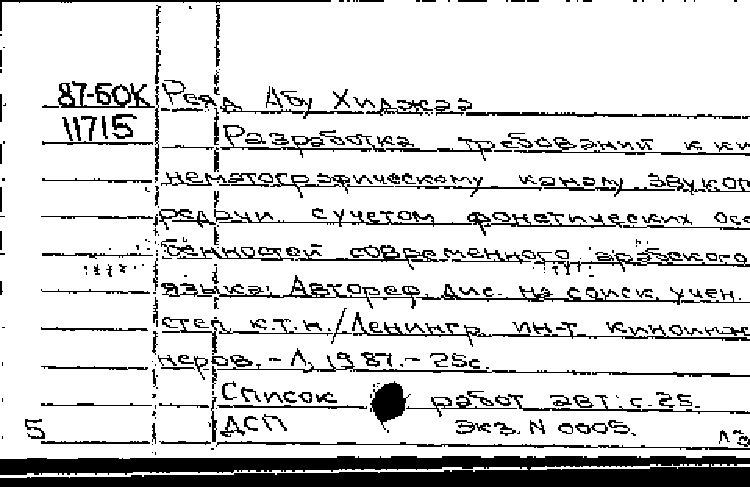 87-БОК Реяд Абу Хиджаз
11715 Разработка требований к ки
нематографическому каналу звукоп
редачи с учетом фонетических осо
бенностей современного арабского
языка: Автореф. дис. на соиск. учен.
степ. к.т.н./Ленингр. ин-т киноинже
неров. - Л, 1987. - 25с.
Список работ авт.: с.25.
5 ДСП Экз. N 0005.